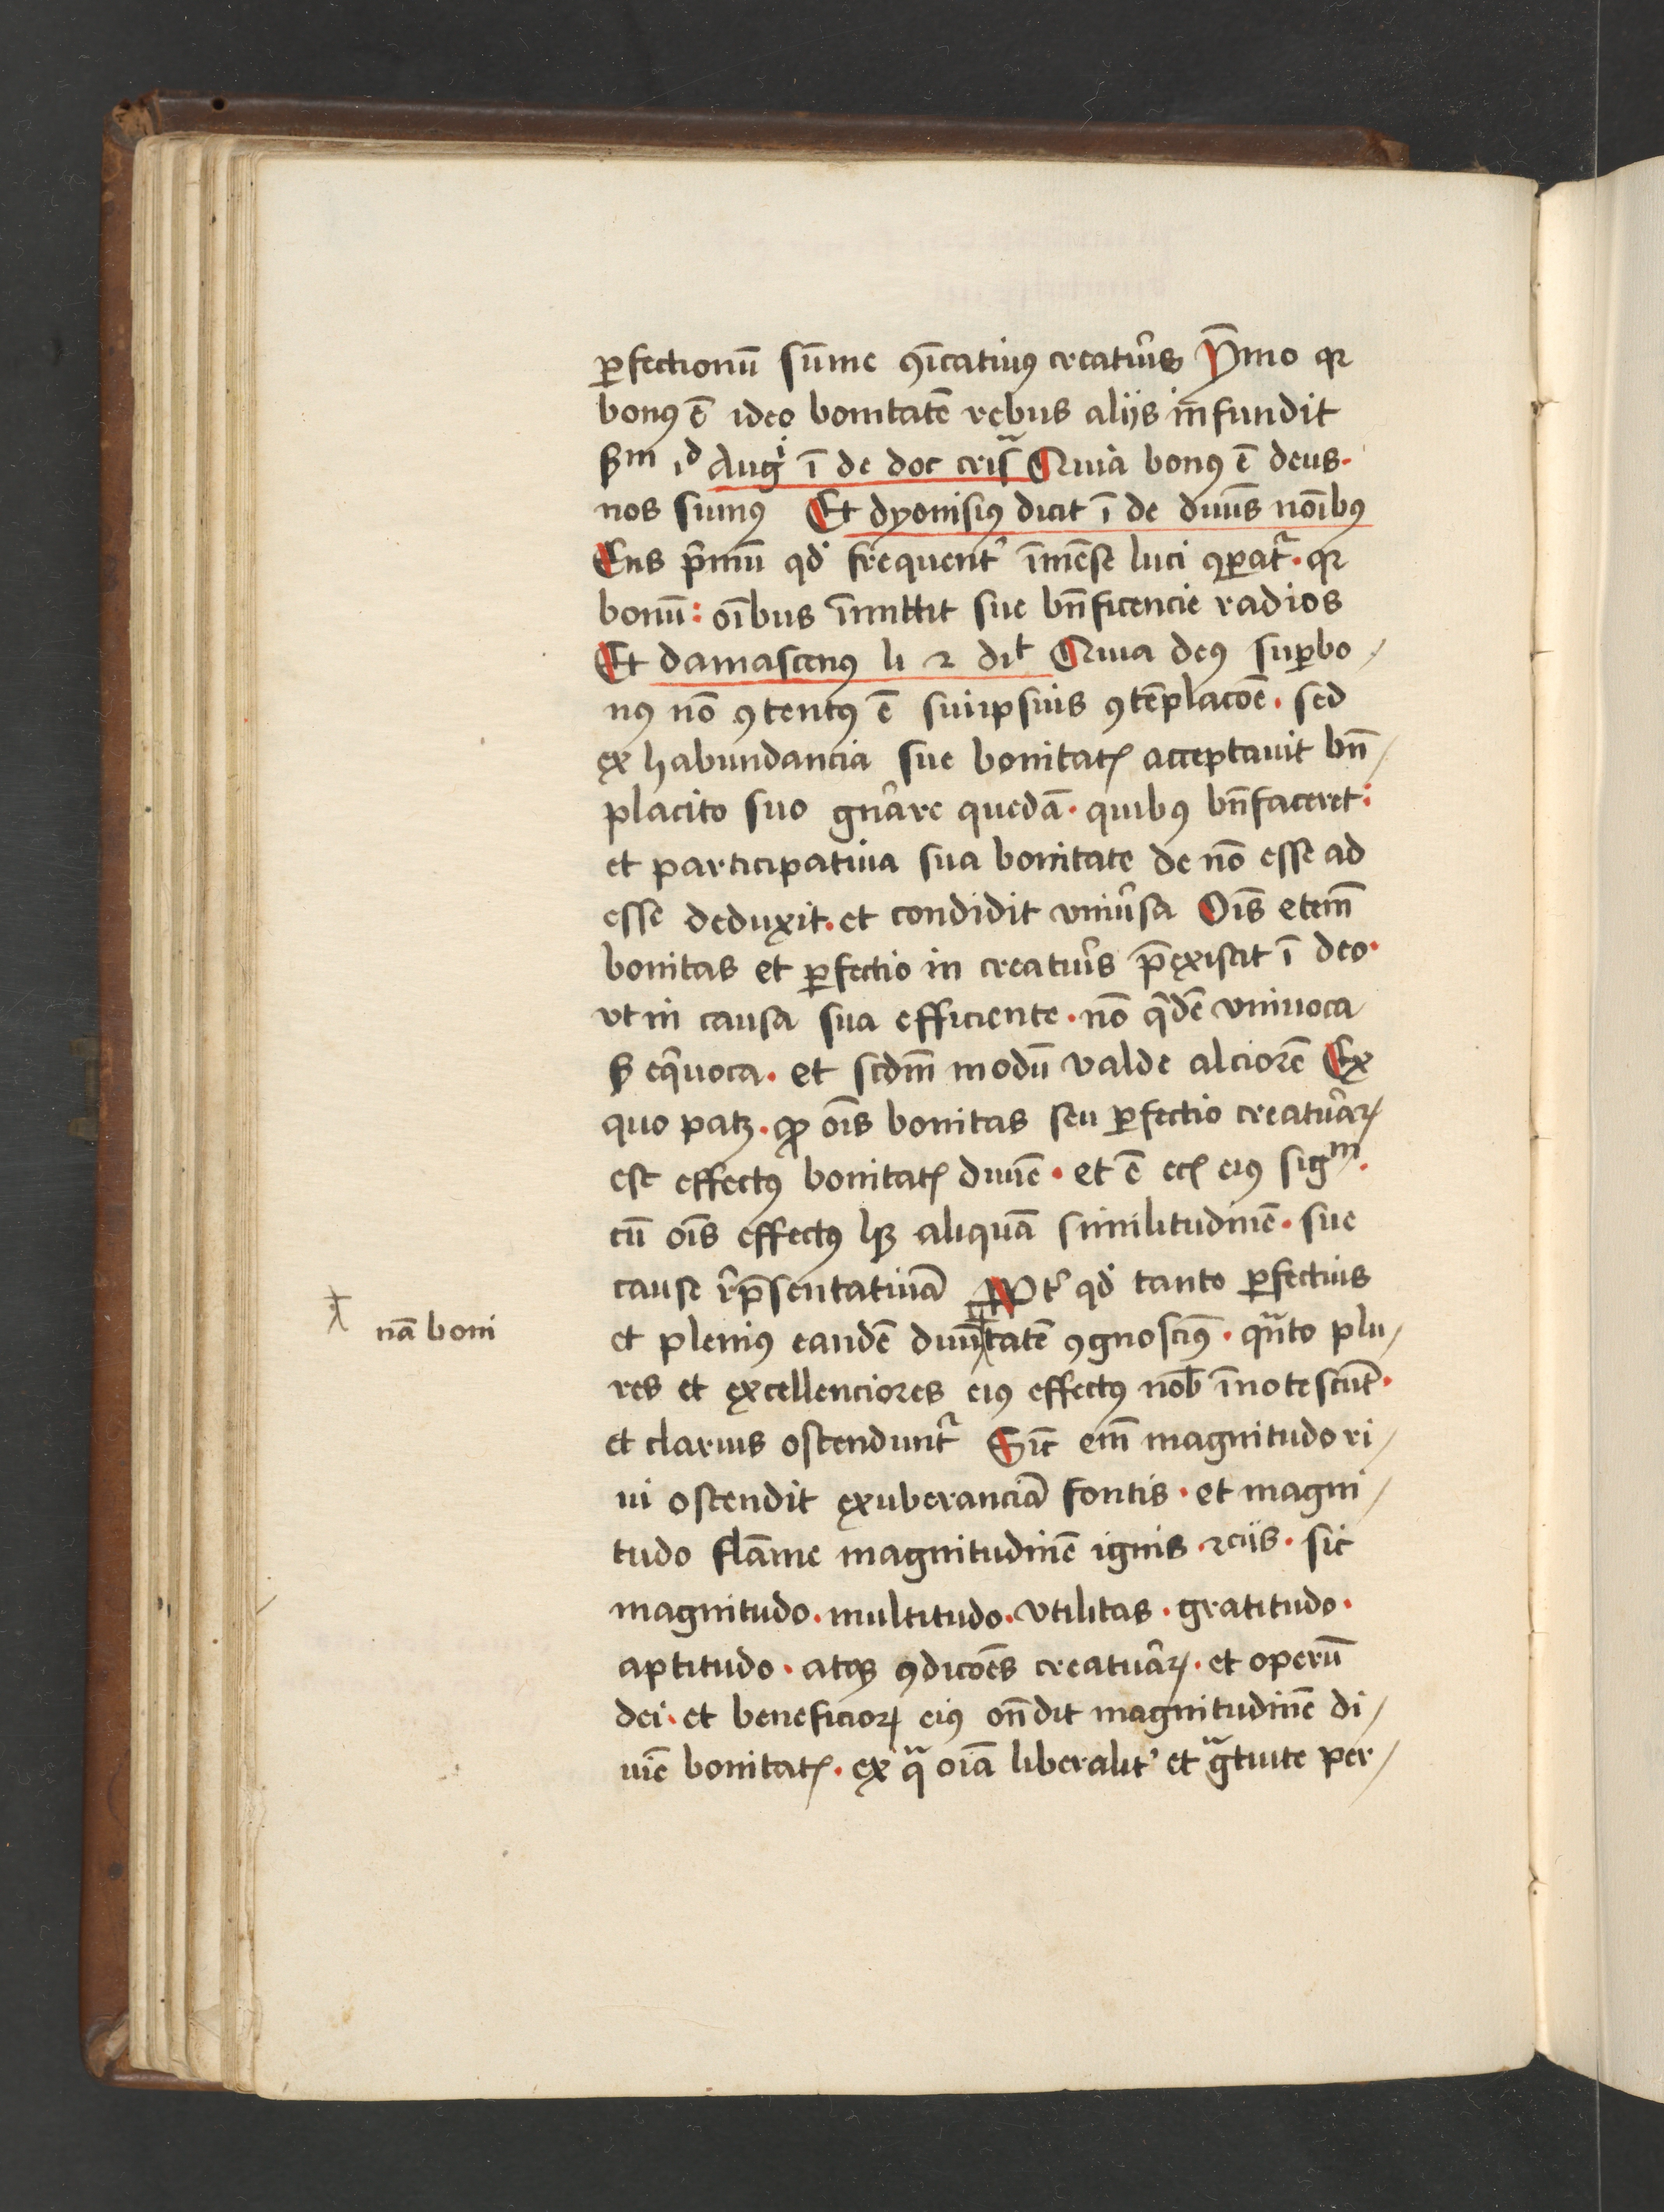 ꝑfectionū sūme ꝯīcatiuꝰ creatur̄is Pͥmo qꝛ
bonꝰ ē ideo bonitatē rebus alijs infundit
ẞm id Augⁱ ī de doc cris Quia bonꝰ ē deus·
nos sumꝰ Et dyonisiꝰ dicit ī de diuīs noībꝰ
Ens p̄mū qd̓ frequent̓ īmēse luci ꝯꝑat᷑· qꝛ
bonū: oībus īmittit sue bn̄ficencie radios
Et damascenꝰ li 2 diͭ Quia deꝰ suꝑbo/
nꝰ nō ꝯtentꝰ ē suiipsius ꝯtēplacōe· sed
ex habundancia sue bonitatꝭ acceptauit bn̄/
placito suo gn̄are quedā· quibꝰ bn̄faceret:
et participatiua sua bonitate de nō esse ad
esse deduxit· et condidit vniu̓sa Oīs eteni̅
bonitas et ꝑfectio in creatur̄s p̄existit ī deo·
vt in causa sua efficiente· nō q̄dē vniuoca
ẞ eq̄uoca· et scdm̄ modū valde alciorē Ex
quo patꝫ· ꝙ oīs bonitas seu ꝑfectio creaturaꝝ
est effectꝰ bonitatꝭ diuīe· et ē eciā eiꝰ sigᵐ·
cū oīs effectꝰ hꝫ aliquā similitudinē· sue
cause rep̄sentatiuā Pꝫt̓ qd̓ tanto ꝑfectius
et pleniꝰ eandē diuinitatē ꝯgnoscimꝰ· quāto plu/
res et excellenciores eiꝰ effectꝰ nob̄ īnotescūt·
et clarius ostendunt᷑ Sic̄ em̄ magnitudo ri/
ui ostendit exuberanciā fontis· et magni/
tudo flāme magnitudinē ignis· ⁊c̄ijs· sic
magnitudo· multitudo· vtilitas· gratitudo·
aptitudo· atqꝫ ꝯdicōes creaturaꝝ· et operū
dei· et beneficioꝝ eiꝰ on̄dit magnitudinē di/
uīe bonitatꝭ· ex qͣ oīa liberalit̓ et gͣtuite per/
nā boni